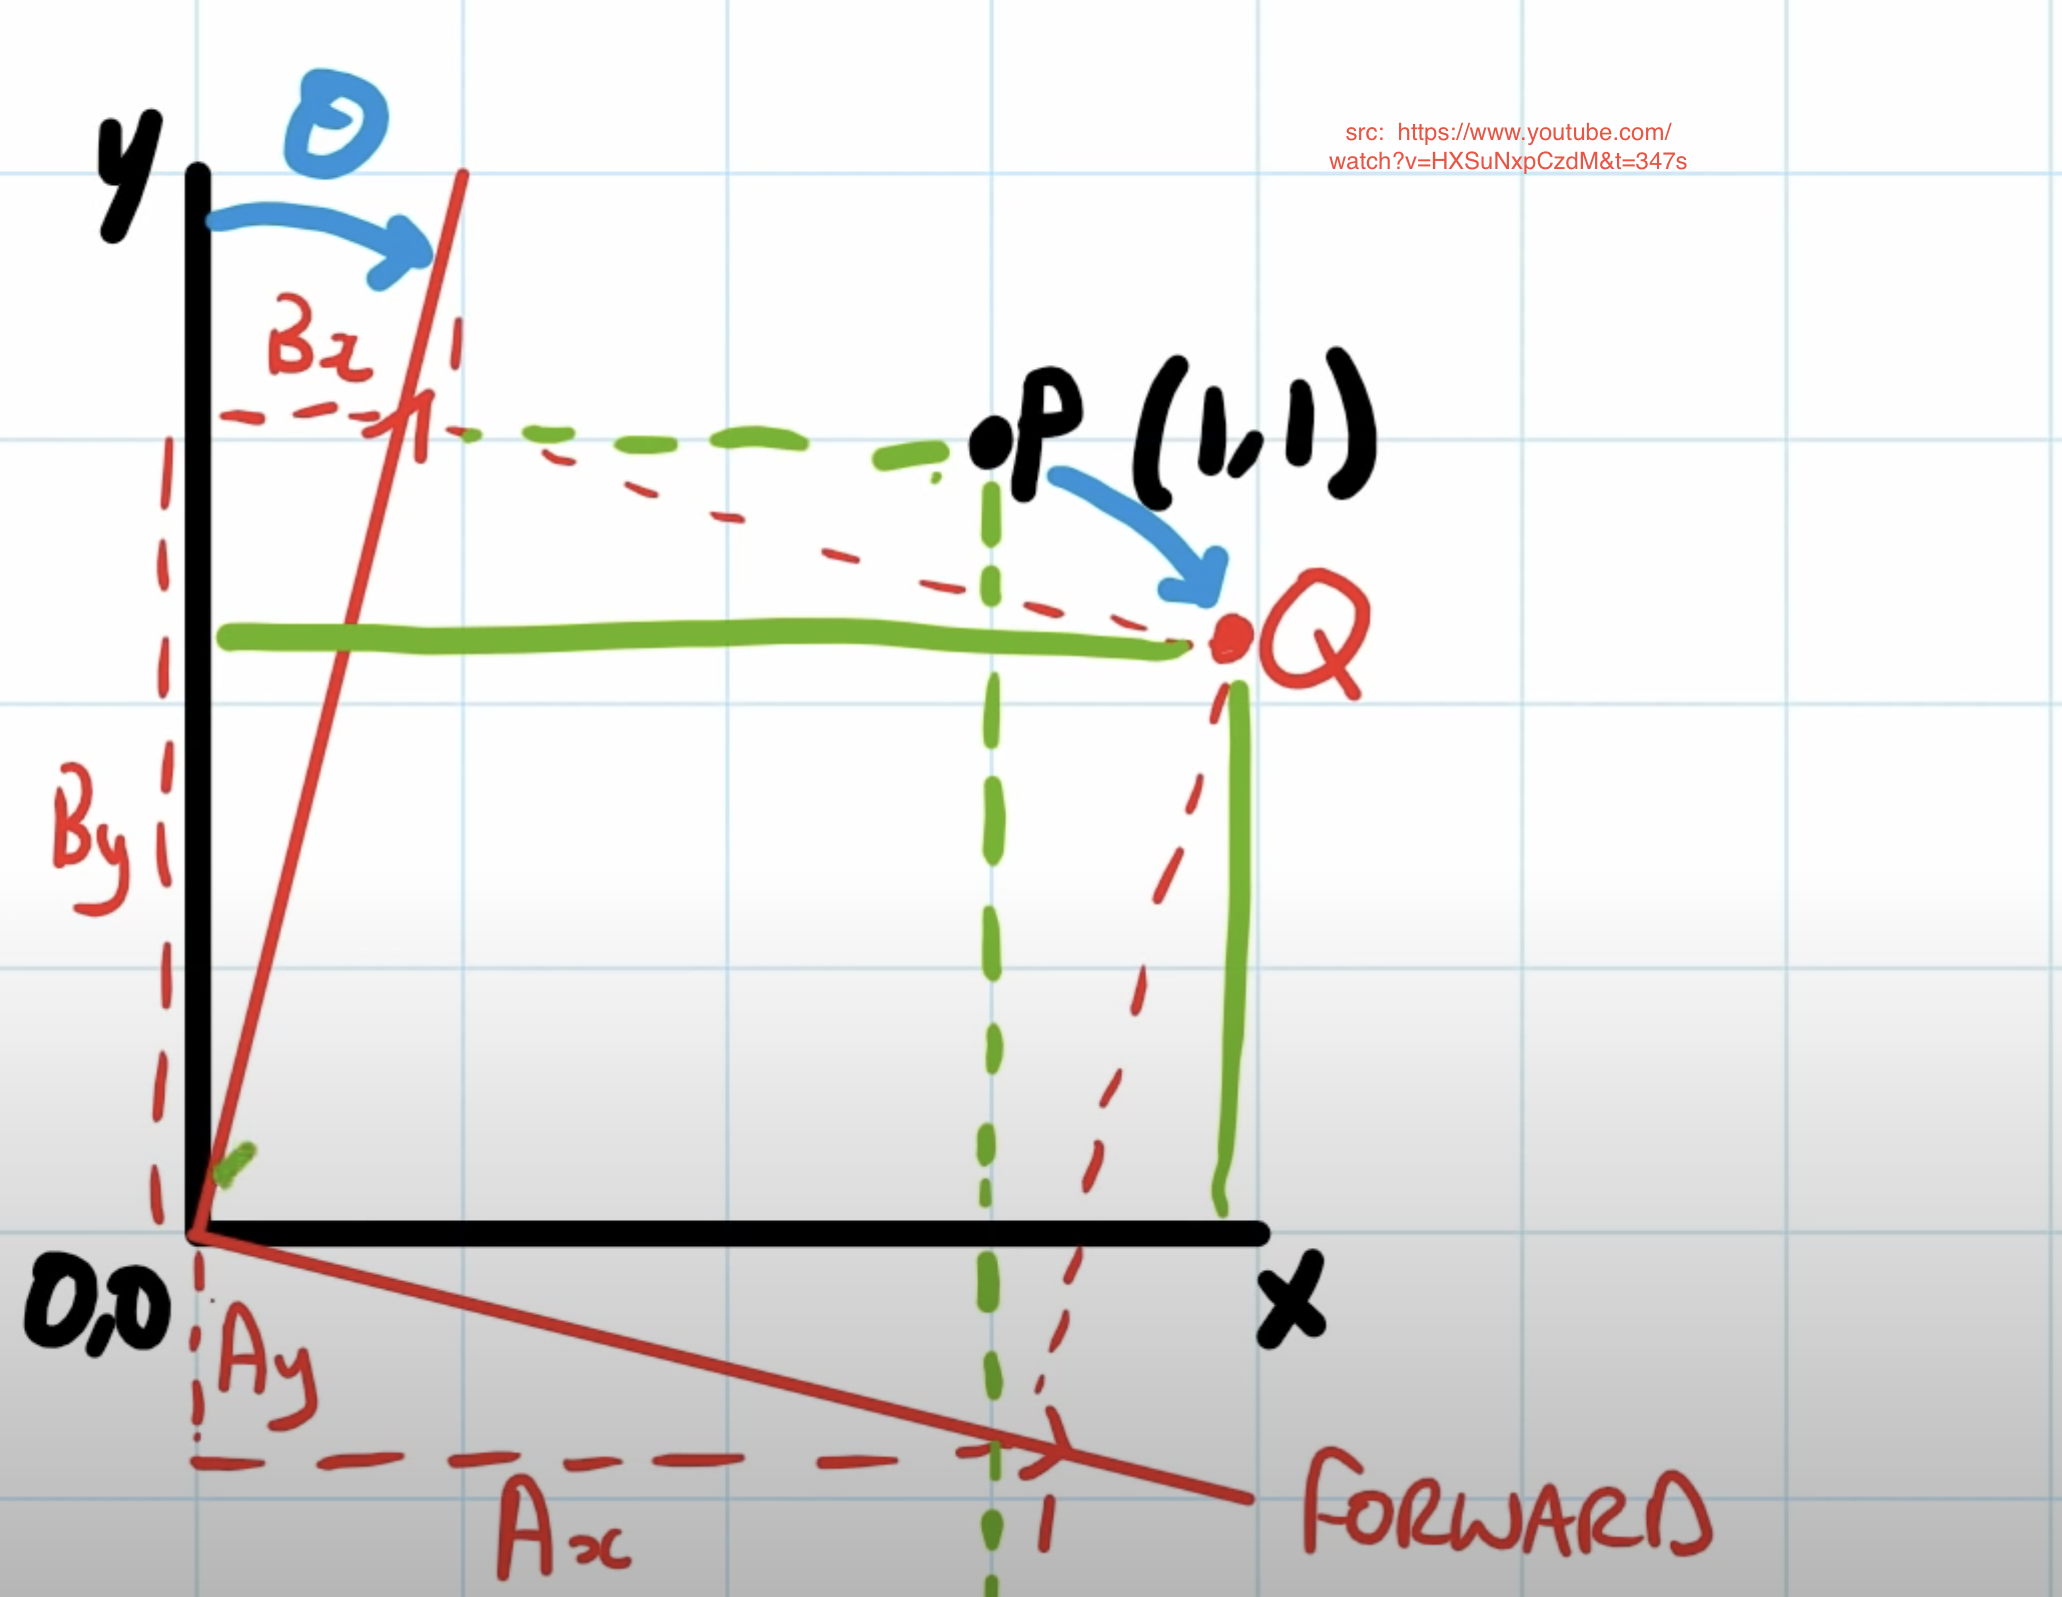 θ
y
src: https://www.youtube.com/
watch?v=HXSuNxpCzdM&t=347s
Bx
1
P (1,1)
Q
By
0,0
x
Ay
Ax
1
FORWARD